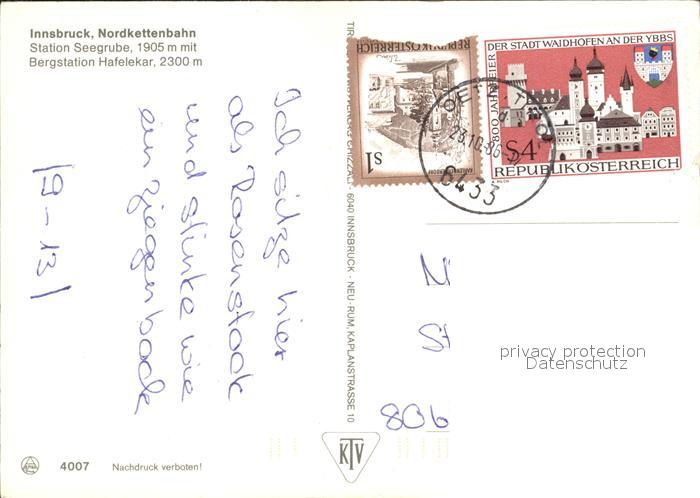 Innsbruck, Nordkettenbahn
Station Seegrube, 1905 m mit
Bergstation Hafelekar, 2300 m
Ich sitze hier
als Rosenstock
und stinke wie
ein Ziegenbock
19-13
4007 Nachdruck verboten!
6040 INNSBRUCK - NEU-RUM, KAPLANSTRASSE 10
KTV
REPUBLIK ÖSTERREICH
S1
800 JAHRFEIER DER STADT WAIDHOFEN AN DER YBBS
S4
REPUBLIK ÖSTERREICH
23.10.86
6433
806
privacy protection
Datenschutz